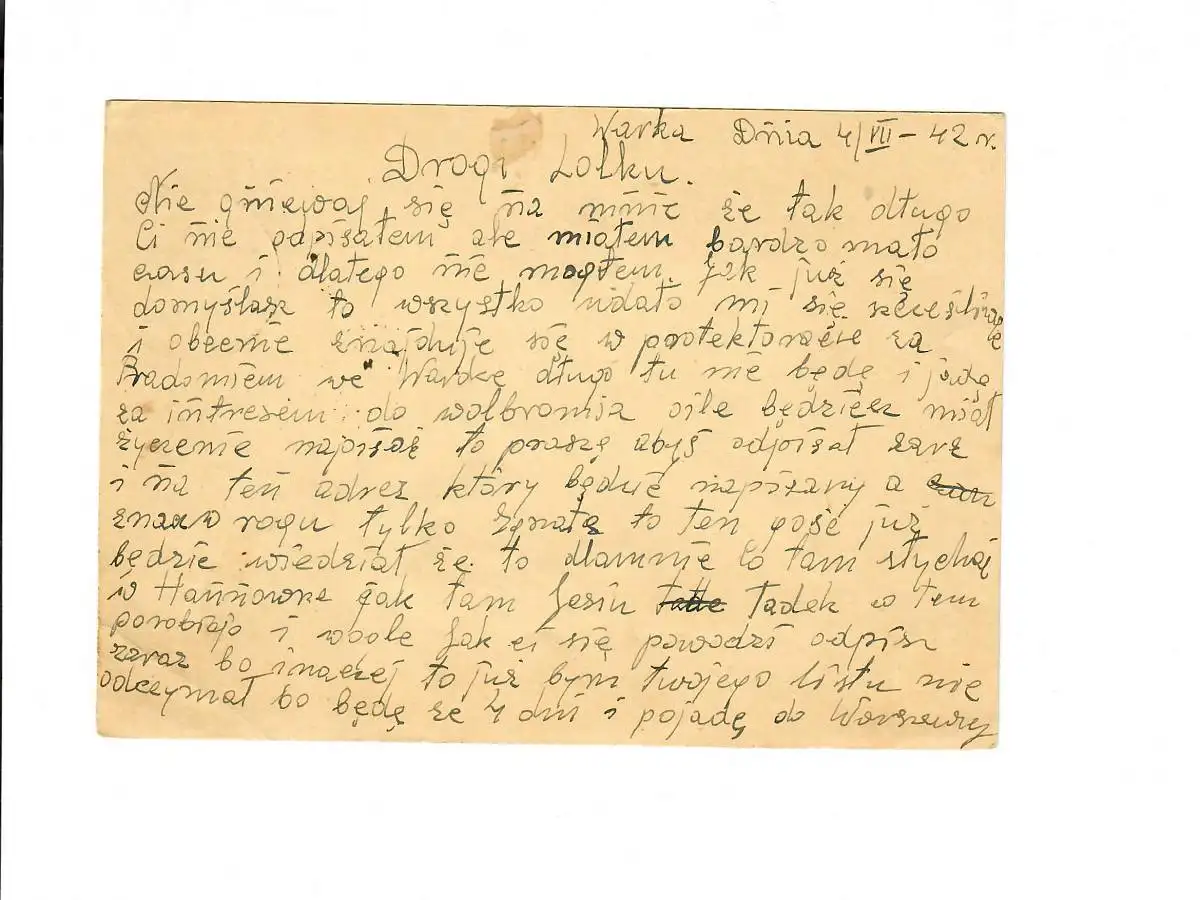 Warka Dńia 4/VII – 42 r.
Drogi Lolku.
Nie gńiewaj się ńa mńie że tak długo
Ci ńie papisałem ale miałem bardzo mało
czasu i dlatego ńie mogłem. Jak już się
domyślasz to wszystko udało mi się
i obecńie znajduję się w protektoracie za
Radomiem we Warkce długo tu ńie będę i jadę
za intresem do wolbromia oile będziesz miał
życzenie napisać to proszę abyś odpisał zarz
i ńa teń adrez który będzie napisany a
znak w rogu tylko to ten gość już
będzie wiedział że to dlamńie Co tam słychać
w Hańńowke jak tam Gesiu Tadek w tem
porobiajo i woole Jak ci się powodzi odpisz
zaraz bo inaczej to już bym twojego listu nie
odczymał bo będę ze 4 dńi i pojadę do Warszawy